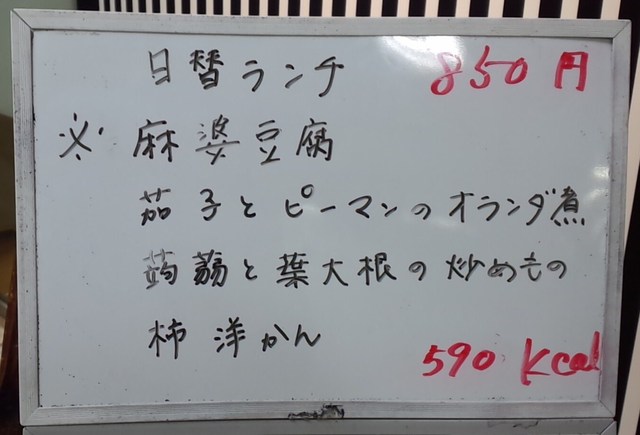 日替ランチ 850円
※ 麻婆豆腐
茄子とピーマンのオランダ煮
蒟蒻と葉大根の炒めもの
柿洋かん
590 kcal